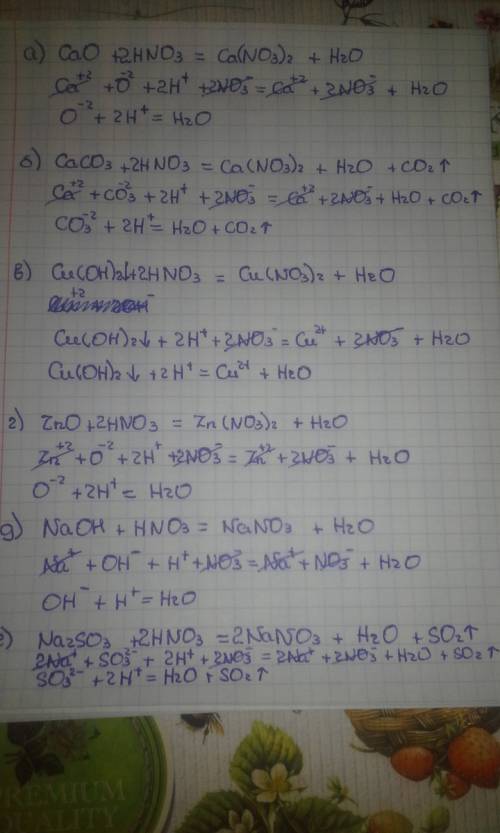 а) CaO + 2HNO3 = Ca(NO3)2 + H2O
Ca+2 + O-2 + 2H+ + 2NO3- = Ca+2 + 2NO3- + H2O
O-2 + 2H+ = H2O
б) CaCO3 + 2HNO3 = Ca(NO3)2 + H2O + CO2↑
Ca+2 + CO3-2 + 2H+ + 2NO3- = Ca+2 + 2NO3- + H2O + CO2↑
CO3-2 + 2H+ = H2O + CO2↑
в) Cu(OH)2↓ + 2HNO3 = Cu(NO3)2 + H2O
Cu(OH)2↓ + 2H+ + 2NO3- = Cu2+ + 2NO3- + H2O
Cu(OH)2↓ + 2H+ = Cu2+ + H2O
г) ZnO + 2HNO3 = Zn(NO3)2 + H2O
Zn+2 + O-2 + 2H+ + 2NO3- = Zn+2 + 2NO3- + H2O
O-2 + 2H+ = H2O
д) NaOH + HNO3 = NaNO3 + H2O
Na+ + OH- + H+ + NO3- = Na+ + NO3- + H2O
OH- + H+ = H2O
е) Na2SO3 + 2HNO3 = 2NaNO3 + H2O + SO2↑
2Na+ + SO3 2- + 2H+ + 2NO3- = 2Na+ + 2NO3- + H2O + SO2↑
SO3 2- + 2H+ = H2O + SO2↑
PREMIUM
QUALITY